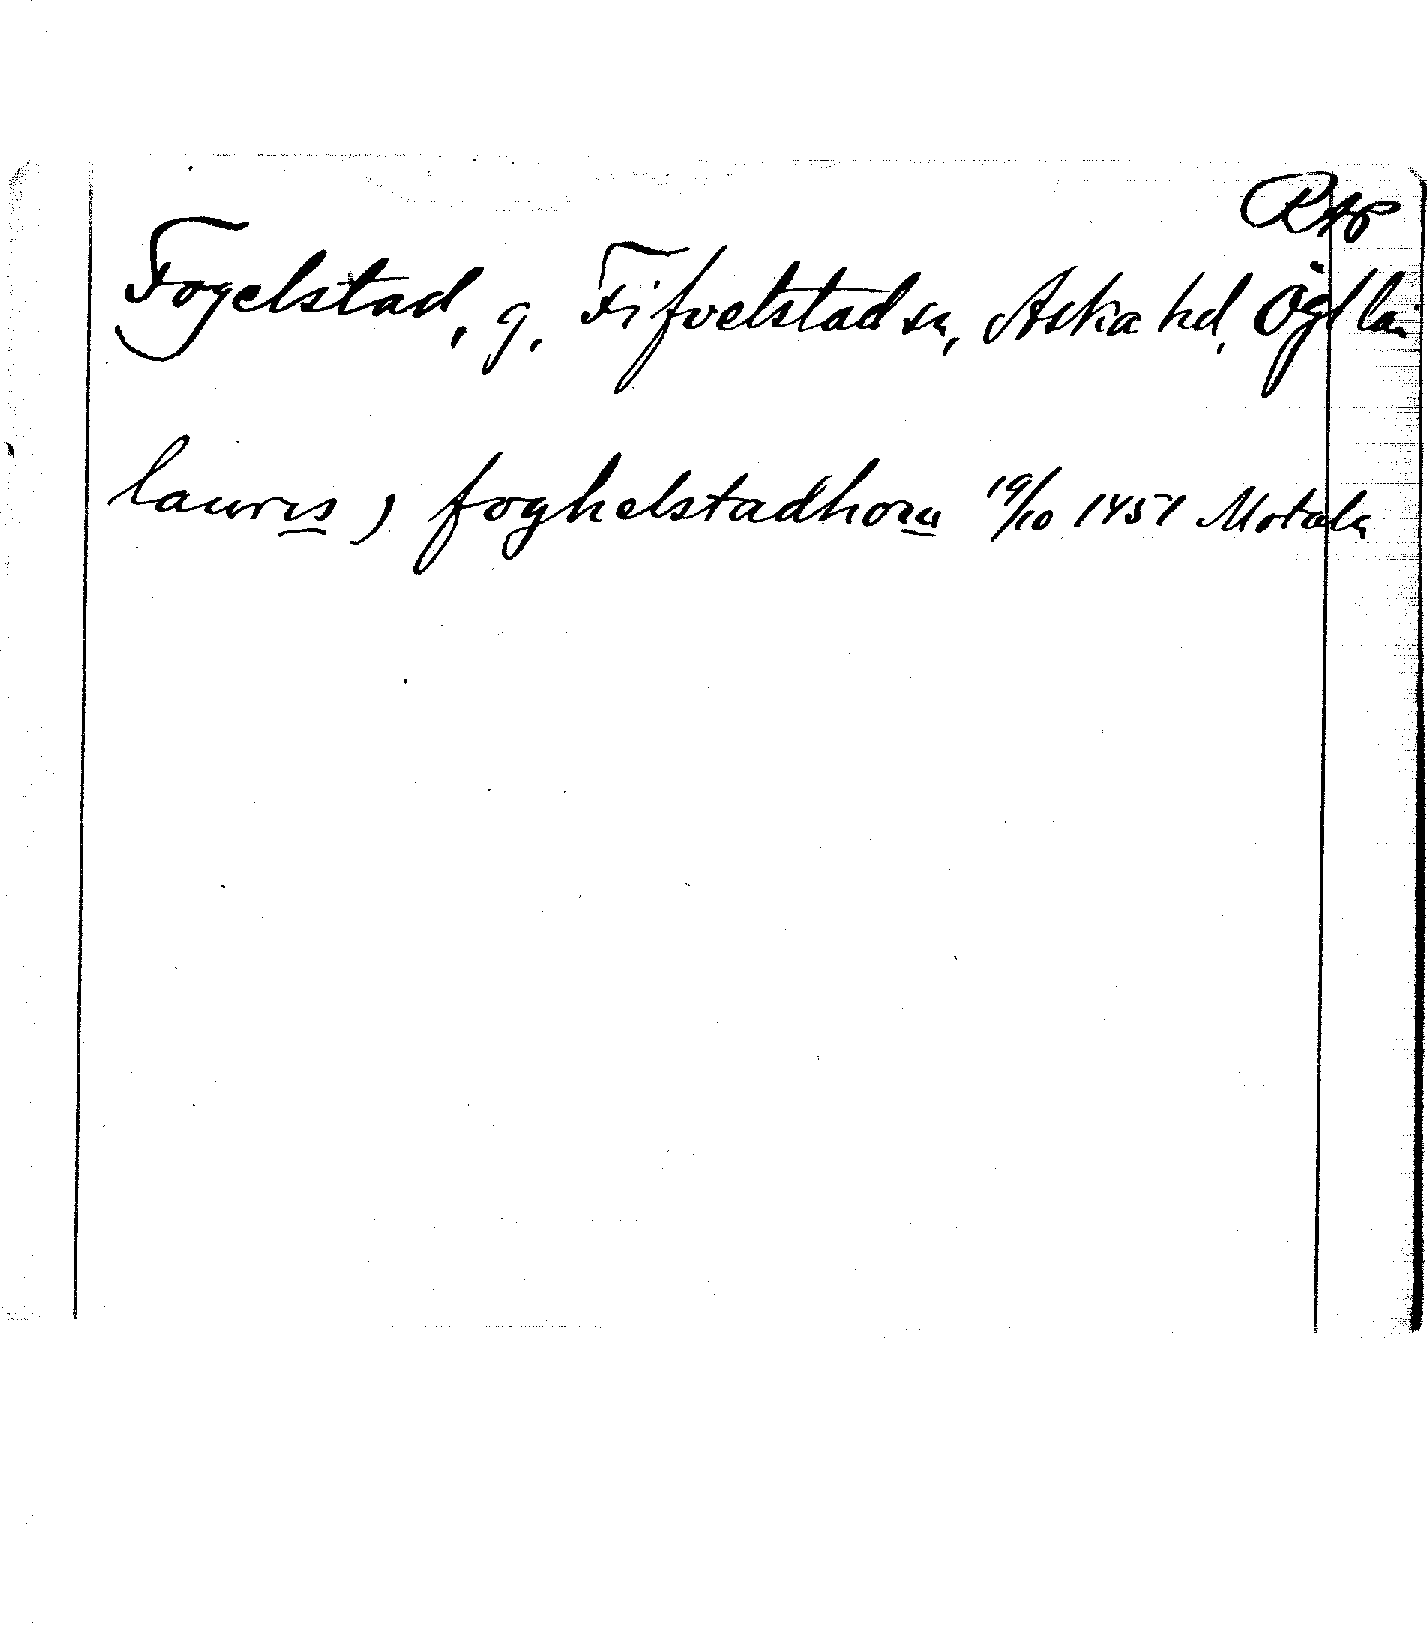 RAP
Fogelstad, g, Fifvelstad sn, Aska hd, Ögl län
laurɛs j foghelstadhom 19/10 1451 Motala